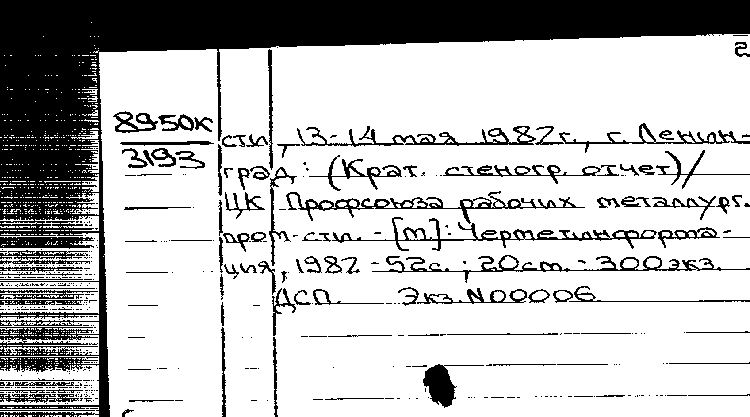 2
8950к
3193
сти, 13-14 мая 1982г., г. Ленин-
град: (Крат. стеногр. отчет)/
ЦК Профсоюза рабочих металлург.
пром-сти. - [м.]: Черметинформа-
ция, 1982 - 52с.; 20см. - 300экз.
ДСП. Экз. N00006